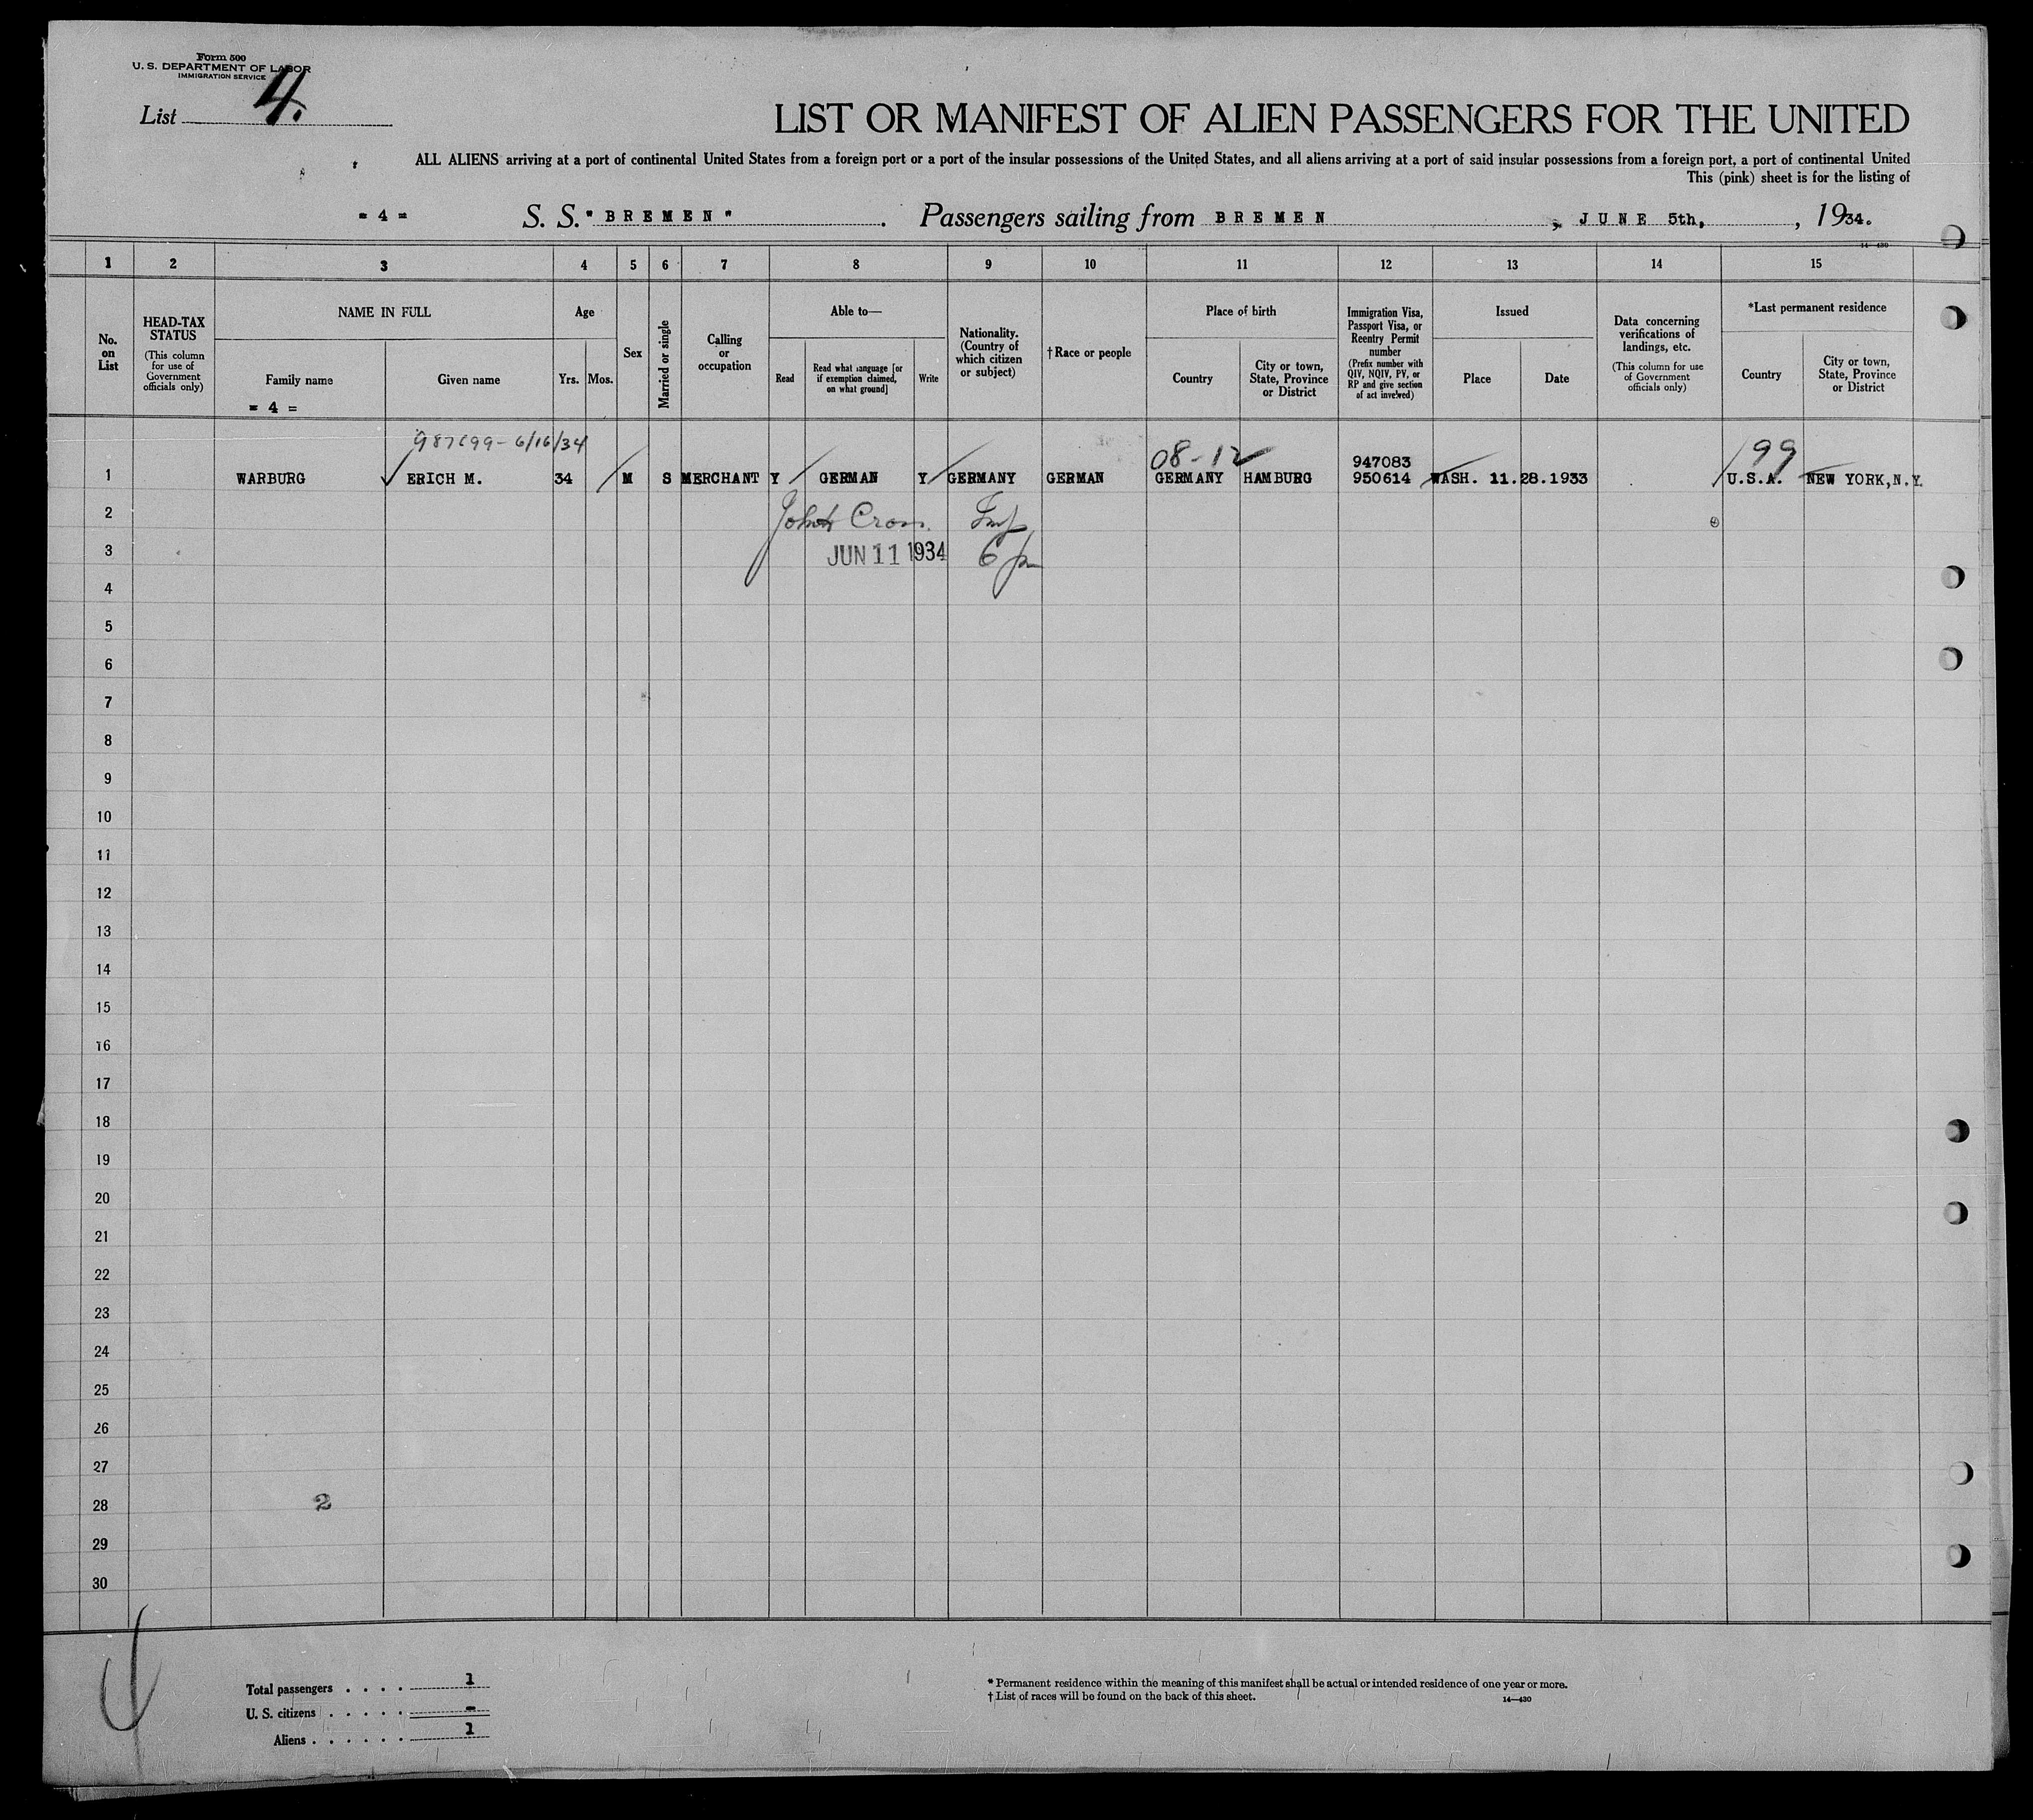 Form 500
U. S. DEPARTMENT OF LABOR
IMMIGRATION SERVICE
List 4.
LIST OR MANIFEST OF ALIEN PASSENGERS FOR THE UNITED
ALL ALIENS arriving at a port of continental United States from a foreign port or a port of the insular possessions of the United States, and all aliens arriving at a port of said insular possessions from a foreign port, a port of continental United
This (pink) sheet is for the listing of
= 4 = S. S. "BREMEN". Passengers sailing from BREMEN, JUNE 5th, , 1934.
14—430
1 2 3 4 5 6 7 8 9 10 11 12 13 14 15
No. on List
HEAD-TAX STATUS
(This column for use of Government officials only)
NAME IN FULL
Family name
= 4 =
Given name
Age
Yrs. Mos.
Sex
Married or single
Calling or occupation
Able to—
Read
Read what language [or if exemption claimed, on what ground]
Write
Nationality. (Country of which citizen or subject)
†Race or people
Place of birth
Country
City or town, State, Province or District
Immigration Visa, Passport Visa, or Reentry Permit number
(Prefix number with QIV, NQIV, PV, or RP and give section of act involved)
Issued
Place
Date
Data concerning verifications of landings, etc.
(This column for use of Government officials only)
*Last permanent residence
Country
City or town, State, Province or District
6/16/34
08-12
947083
199
1 WARBURG ERICH M. 34 M S MERCHANT Y GERMAN Y GERMANY GERMAN GERMANY HAMBURG 950614 WASH. 11.28.1933 U.S.A. NEW YORK,N.Y.
2 Cross
3 JUN 11 1934 6
4
5
6
7
8
9
10
11
12
13
14
15
16
17
18
19
20
21
22
23
24
25
26
27
28 2
29
30
Total passengers . . . . 1
U. S. citizens . . . . . -
Aliens . . . . . . 1
* Permanent residence within the meaning of this manifest shall be actual or intended residence of one year or more.
† List of races will be found on the back of this sheet.
14—430